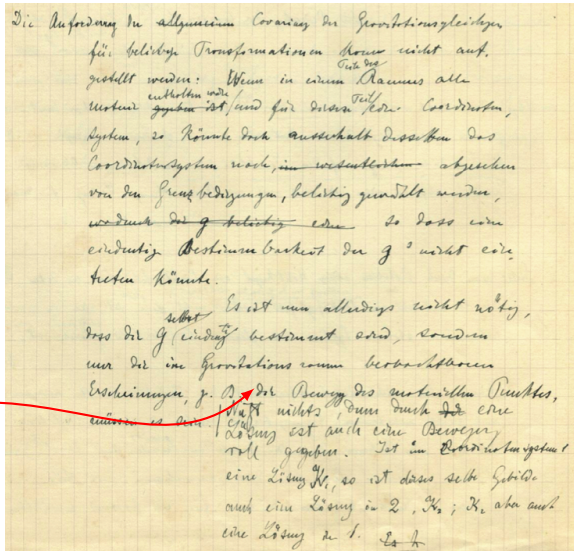 Die Anforderung der allgemeinen Covarianz der Gravitationsgleichungen
für beliebige Transformationen kann nicht auf-
gestellt werden: Wenn in einem Teile des Raumes alle
Materie gegeben ist enthalten wäre und für diesen Teil ein Coordinaten-
system, so könnte doch ausserhalb desselben das
Coordinatensystem noch, im wesentlichen abgesehen
von den Grenzbedingungen, beliebig gewählt werden,
so dass eine
eindeutige Bestimmbarkeit der g's nicht ein-
treten könnte.
Es ist nun allerdings nicht nötig,
dass die g selbst eindeutig bestimmt sind, sondern
nur die im Gravitationsraum beobachtbaren
Erscheinungen, z. B. die Bewegung des materiellen Punktes,
müssen es sein.
Nützt nichts, denn durch die eine
Lösung ist auch eine Bewegung
voll gegeben. Ist im Coordinatensystem 1
eine Lösung K₁, so ist dieses selbe Gebilde
auch eine Lösung in 2, K₂; K₂ aber auch
eine Lösung in 1.